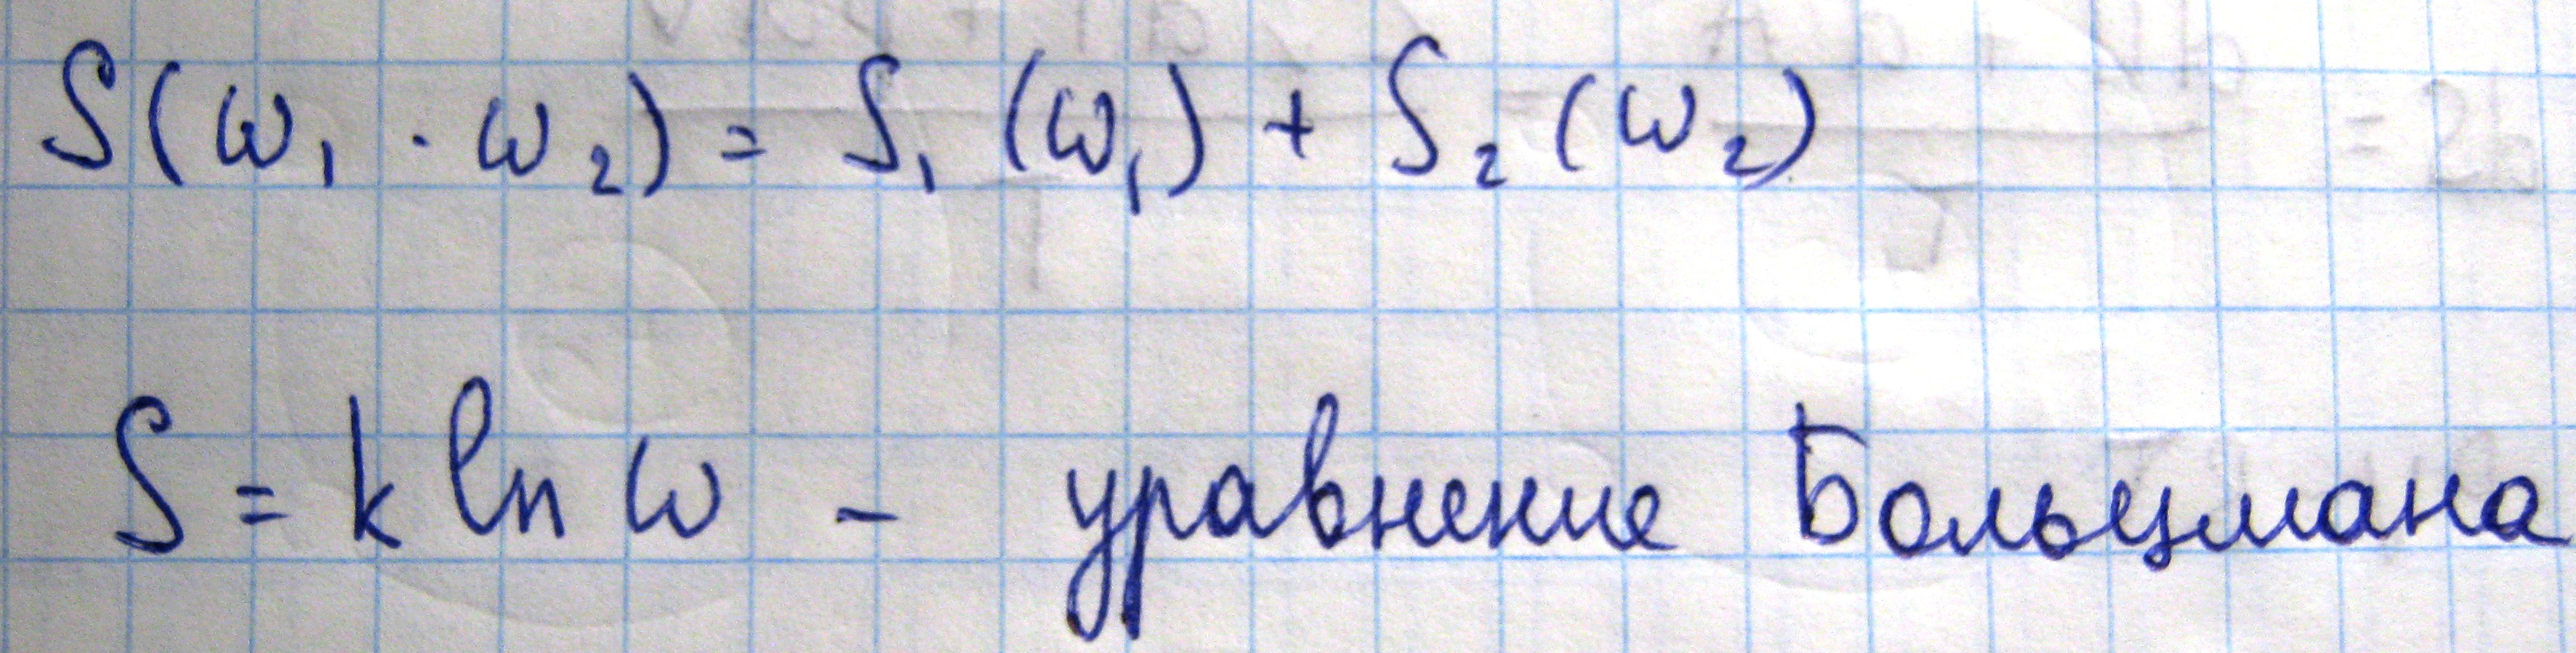 S(ω₁ · ω₂) = S₁ (ω₁) + S₂ (ω₂)
S = k ln ω – уравнение Больцмана